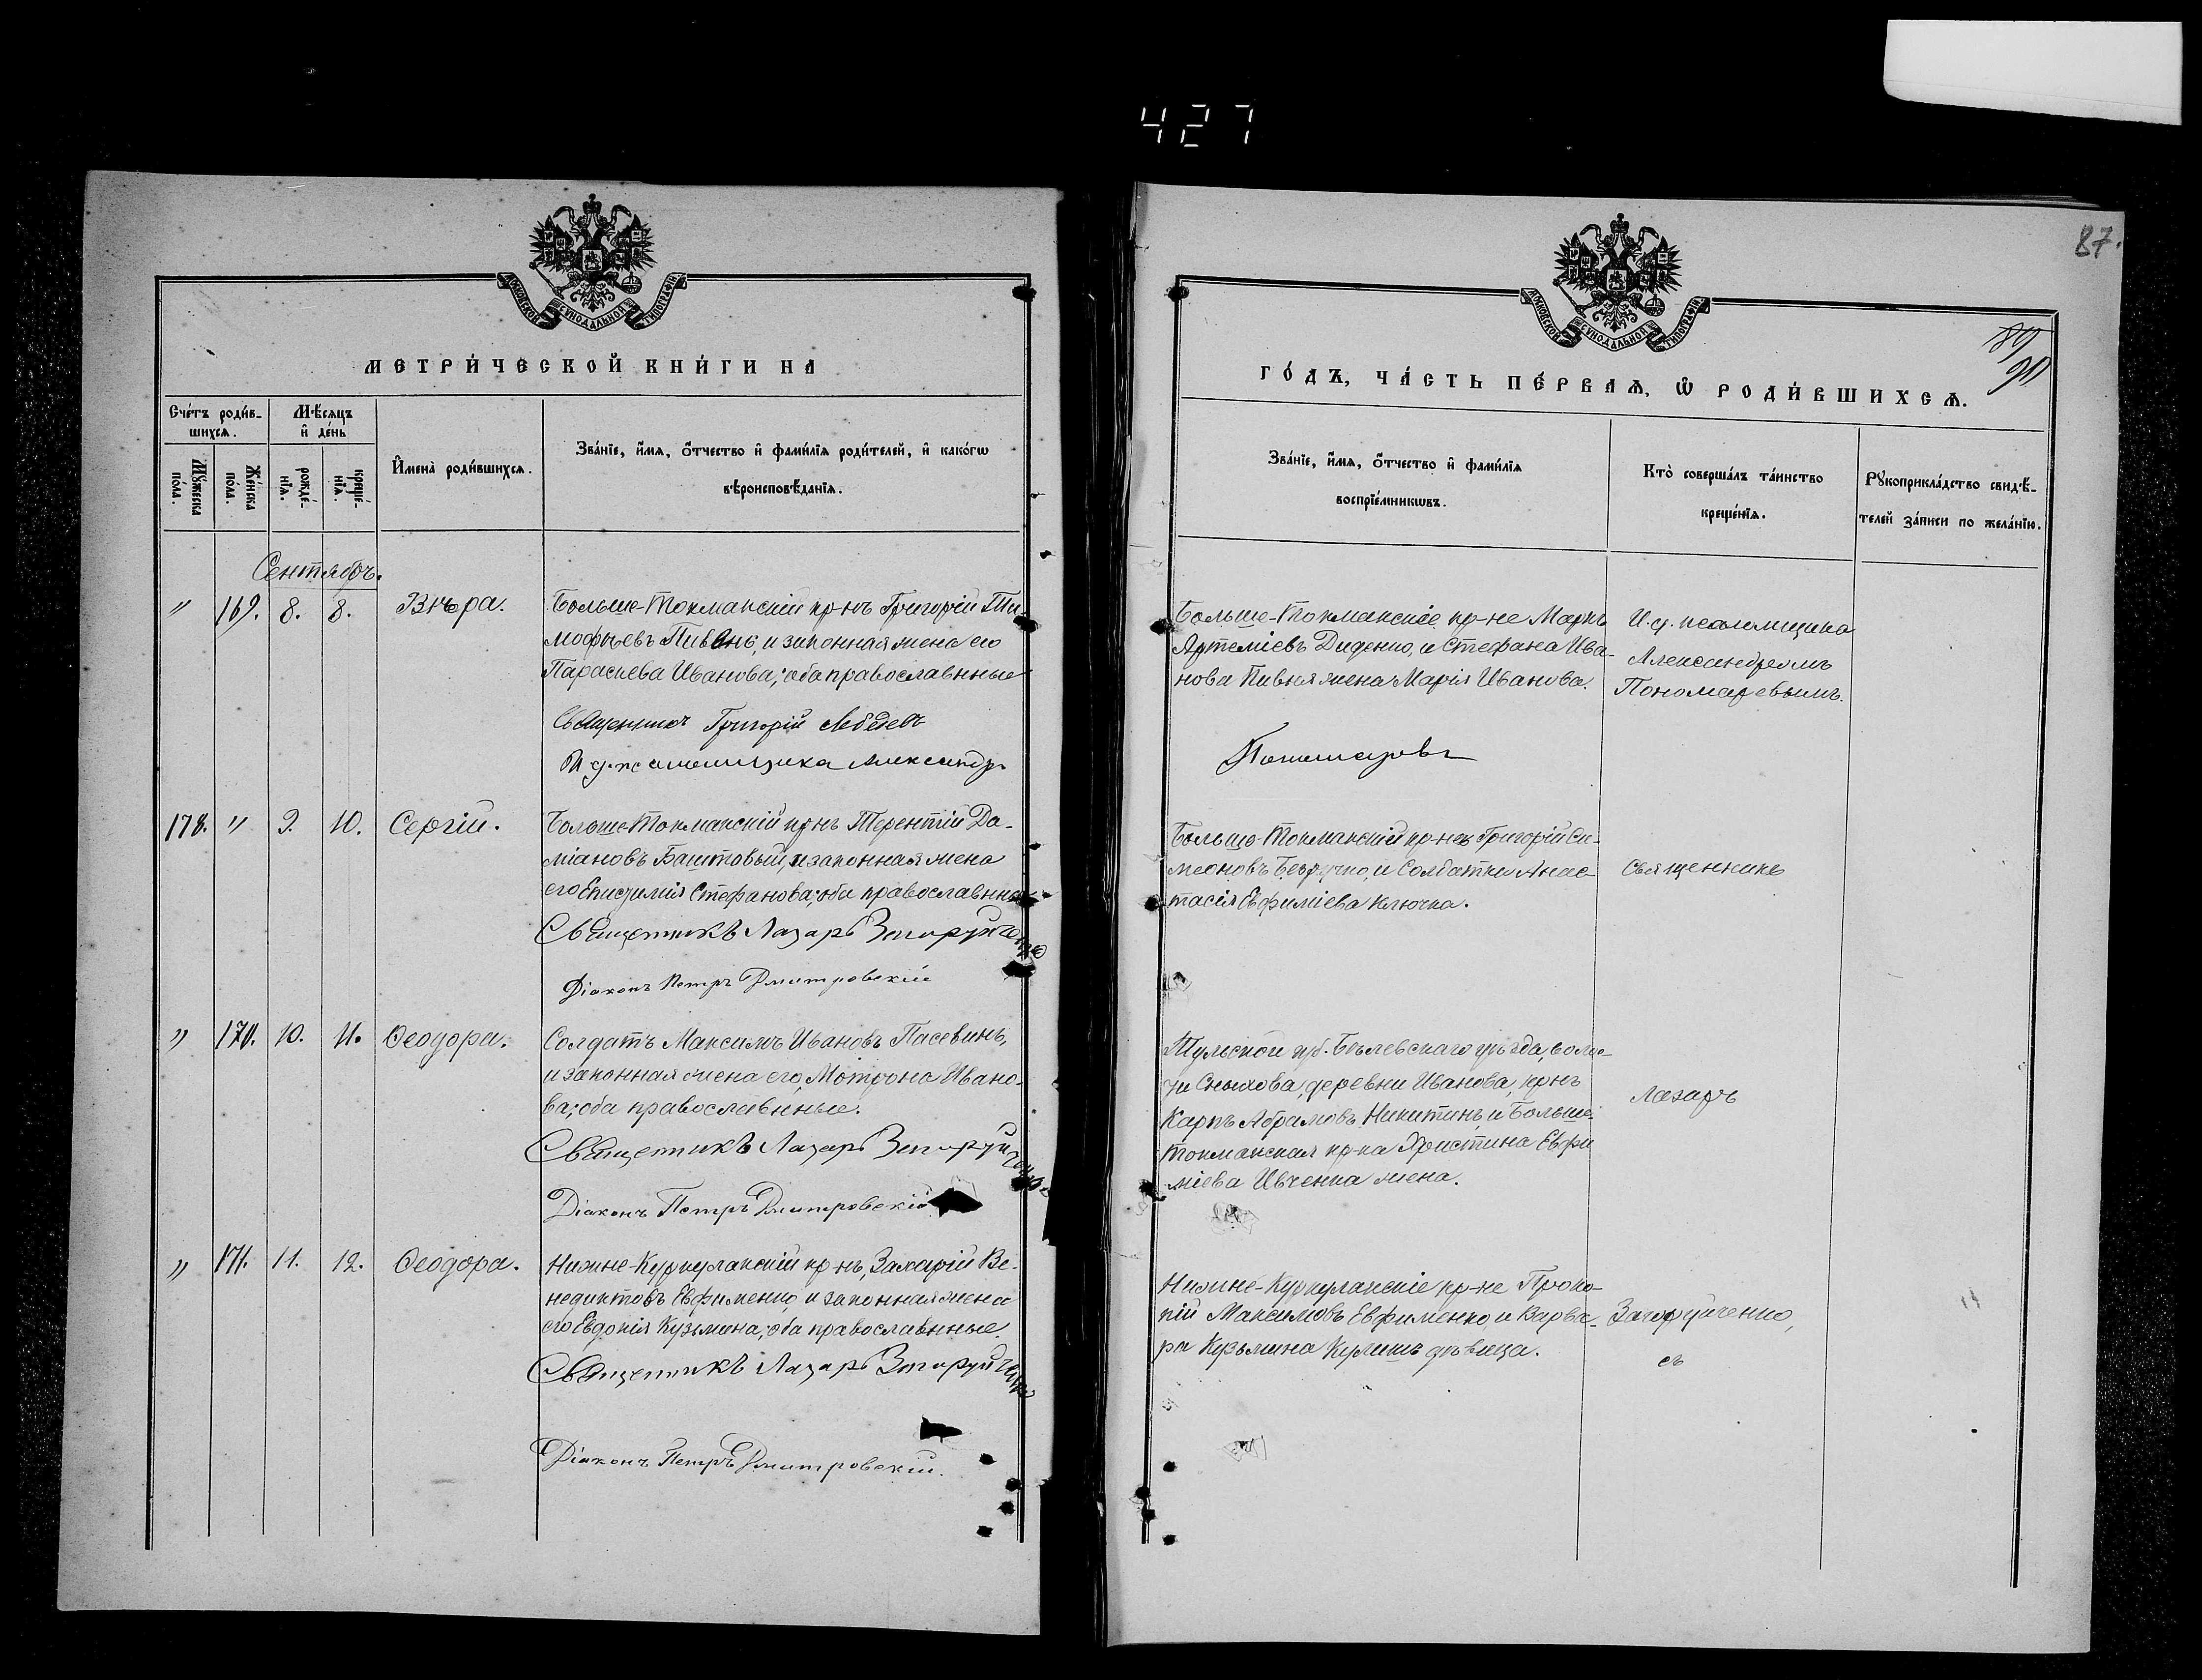 427
МОСКОВСКОЙ СѴНОДАЛЬНОЙ ТИПОГРАФІИ
МЕТРИ́ЧЕСКОЙ КНИ́ГИ НА
Сче́тъ роди́в-
шихсѧ.
Мꙋ́жеска по́ла.
Же́нска пола.
Мѣ́сѧцъ
и҆ де́нь
рожде́-нїѧ.
креще́-нїѧ.
И҆мена̀ роди́вшихсѧ.
Зва́нїе, и҆́мѧ, ѻ҆́тчество и҆ фами́лїѧ роди́телей, и҆ како́гѡ
вѣроисповѣ́данїѧ.
Сентябрь.
" 169. 8. 8. Вѣра.
Больше-Токмакскій кр-нъ Григорій Ти-
мофѣевъ Пивень, и законная жена его
Параскева Иванова; оба православнные
Священникъ Григорій Лебедевъ
И д. псаломщика Александръ
178. " 9. 10. Сергій.
Больше-Токмакскій кр-нъ Терентій Да-
міановъ Баштовый, и законная жена
его Епистимія Стефанова; оба православнные
Священникъ Лазарь Загоруйченко
Діаконъ Петръ Дмитровскій
" 170. 10. 11. Ѳеодора.
Солдатъ Максимъ Ивановъ Пасевинъ,
и законная жена его, Мотрона Ивано-
ва; оба православнные.
Священникъ Лазарь Загоруйченко
Діаконъ Петръ Дмитровскій
" 171. 11. 12. Ѳеодора.
Нижне-Куркулакскій кр-нъ, Захарій Ве-
недиктовъ Евфименко, и законная жена
его Евдокія Кузьмина; оба православнные.
Священникъ Лазарь Загоруйченко
Діаконъ Петръ Дмитровскій.
87.
90
МОСКОВСКОЙ СѴНОДАЛЬНОЙ ТИПОГРАФІИ
ГО́ДЪ, ЧА́СТЬ ПЕ́РВАѦ, Ѽ РОДИ́ВШИХСѦ.
Зва́нїе, и҆́мѧ, ѻ҆́тчество и҆ фами́лїѧ
воспрїе́мникѡвъ.
Кто̀ соверша́лъ та́инство
креще́нїѧ.
Рꙋкоприкла́дство свидѣ́-
телей за́писи по жела́нїю.
Больше-Токмакскіе кр-не Маркъ
Артеміевъ Диденко, и Стефана Ива-
нова Пивня жена Марія Иванова.
И. д. псаломщика
Александромъ
Пономаревымъ.
Пономаревъ
Больше-Токмакскій кр-нъ Григорій Си-
меоновъ Безручко, и Солдатка Анас-
тасія Евфиміева Ключка.
Священникъ
Тульской губ. Бѣлевскаго уѣзда, волос-
ти Сныхова, деревни Иванова, кр-нъ
Карпъ Абрамовъ Никитинъ, и Больше-
Токмакская кр-ка Христина Евфи
міева Ивченка жена.
Лазарь
Нижне-Куркулакскіе кр-не Проко-
пій Максимовъ Евфименко и Варва-
ра Кузьмина Кулишъ дѣвица.
Загоруйченко,
съ